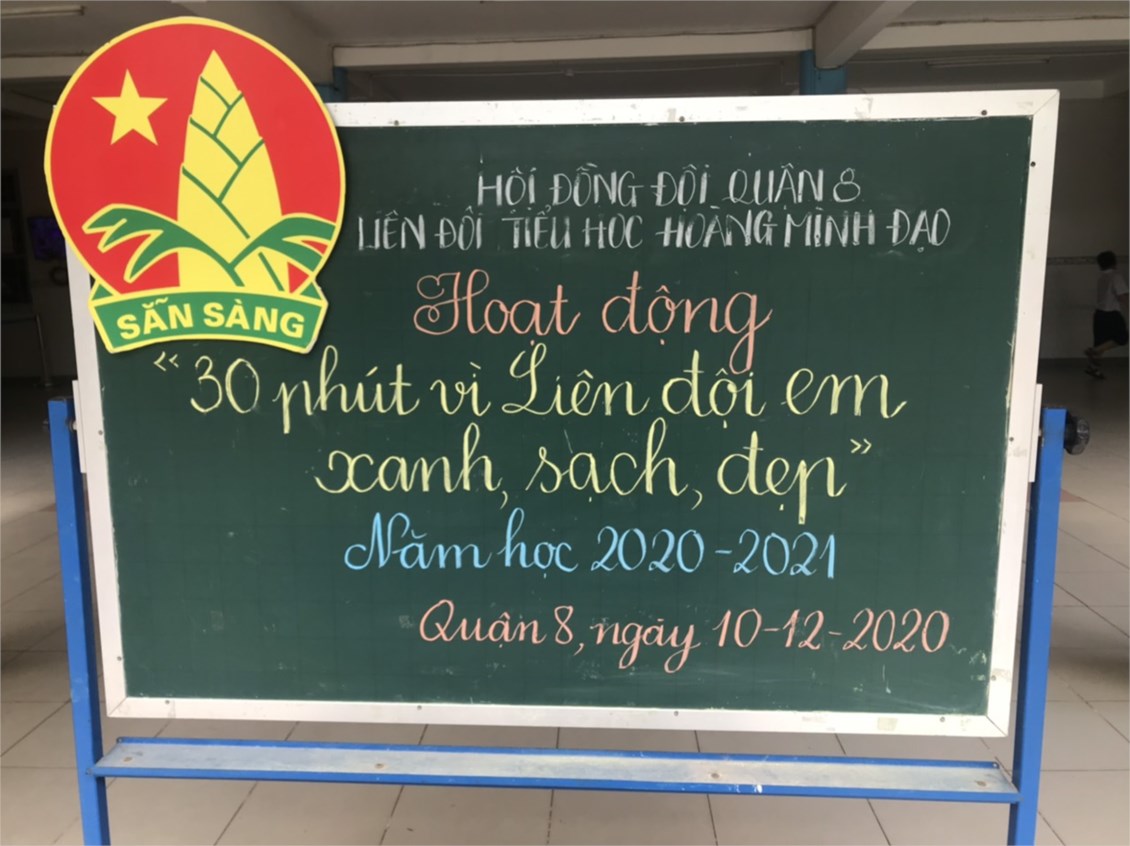 SẴN SÀNG
HỘI ĐỒNG ĐỘI QUẬN 8
LIÊN ĐỘI TIỂU HỌC HOÀNG MINH ĐẠO
Hoạt động
"30 phút vì Liên đội em
xanh, sạch, đẹp"
Năm học 2020-2021
Quận 8, ngày 10-12-2020